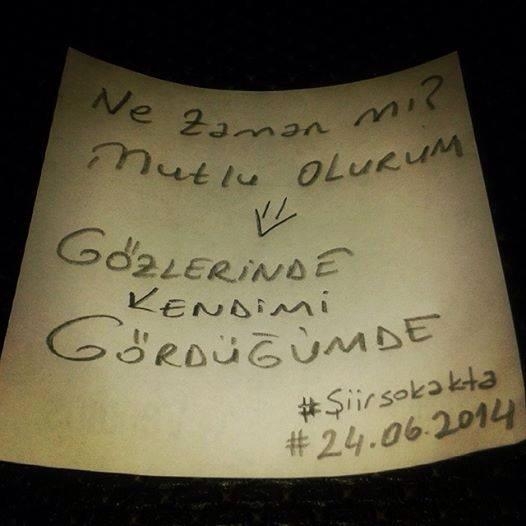 Ne zaman mı?
mutlu OLURUM
GÖZLERİNDE
KENDiMi
GÖRDÜĞÜMDE
#Şiirsokakta
#24.06.2014